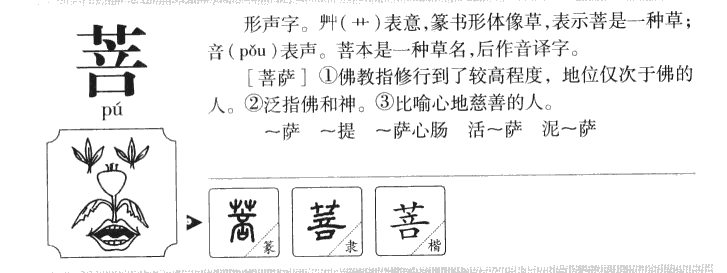 菩
pú
形声字。艸(艹)表意,篆书形体像草,表示菩是一种草;
咅(pǒu)表声。菩本是一种草名,后作音译字。
[菩萨] ①佛教指修行到了较高程度，地位仅次于佛的
人。②泛指佛和神。③比喻心地慈善的人。
～萨 ～提 ～萨心肠 活～萨 泥～萨
菩 篆 菩 隶 菩 楷